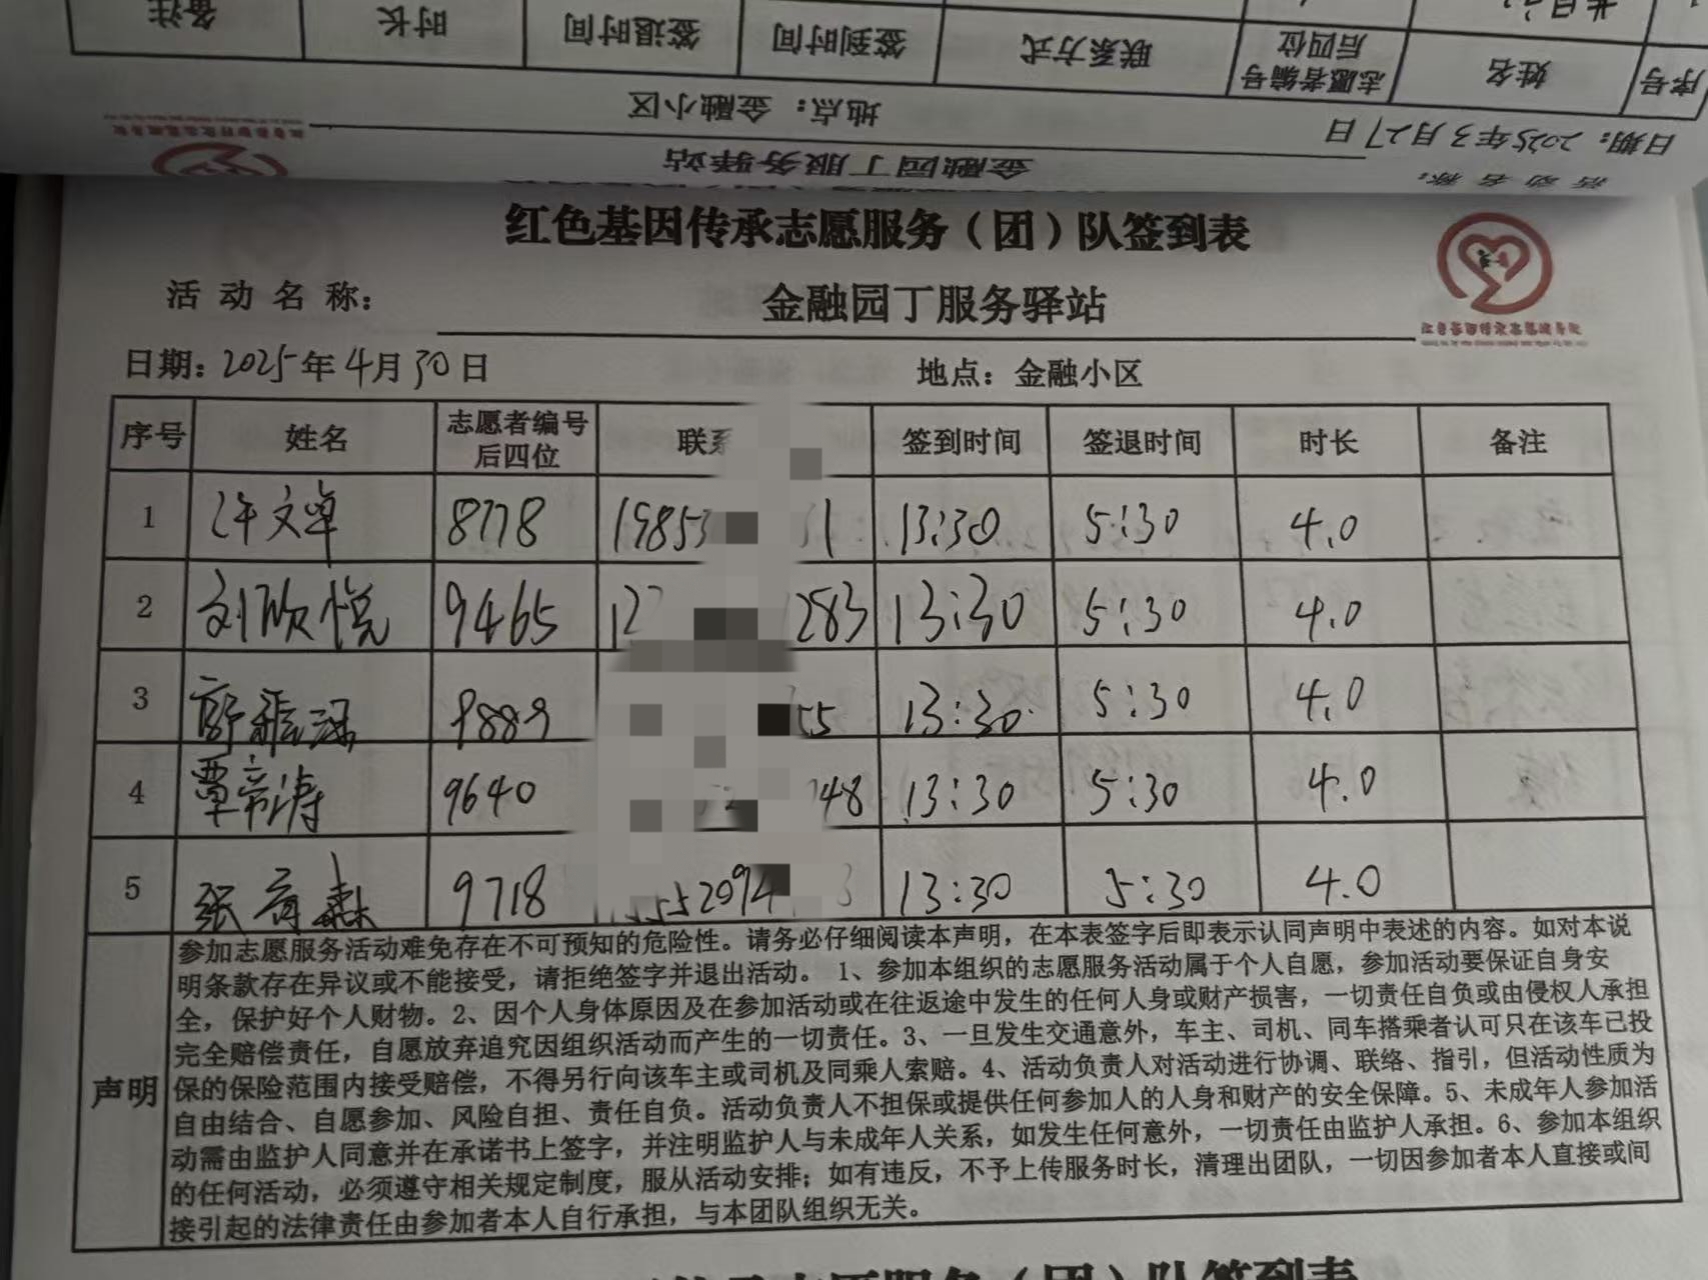 备注 时长 签退时间 签到时间 联系方式 志愿者编号后四位 姓名 序号
地点：金融小区
日期：2025年3月27日
金融园丁服务驿站
活动名称：
红色基因传承志愿服务（团）队签到表
活动名称：
金融园丁服务驿站
日期：2025年4月30日 地点：金融小区
序号 姓名 志愿者编号后四位 联系 签到时间 签退时间 时长 备注
1 许文卓 8778 19853 31 13:30 5:30 4.0
2 刘欣悦 9465 283 13:30 5:30 4.0
3 9889 55 13:30 5:30 4.0
4 覃 涛 9640 48 13:30 5:30 4.0
5 张 9718 552094 3 13:30 5:30 4.0
声明
参加志愿服务活动难免存在不可预知的危险性。请务必仔细阅读本声明，在本表签字后即表示认同声明中表述的内容。如对本说
明条款存在异议或不能接受，请拒绝签字并退出活动。1、参加本组织的志愿服务活动属于个人自愿，参加活动要保证自身安
全，保护好个人财物。2、因个人身体原因及在参加活动或在往返途中发生的任何人身或财产损害，一切责任自负或由侵权人承担
完全赔偿责任，自愿放弃追究因组织活动而产生的一切责任。3、一旦发生交通意外，车主、司机、同车搭乘者认可只在该车已投
保的保险范围内接受赔偿，不得另行向该车主或司机及同乘人索赔。4、活动负责人对活动进行协调、联络、指引，但活动性质为
自由结合、自愿参加、风险自担、责任自负。活动负责人不担保或提供任何参加人的人身和财产的安全保障。5、未成年人参加活
动需由监护人同意并在承诺书上签字，并注明监护人与未成年人关系，如发生任何意外，一切责任由监护人承担。6、参加本组织
的任何活动，必须遵守相关规定制度，服从活动安排；如有违反，不予上传服务时长，清理出团队，一切因参加者本人直接或间
接引起的法律责任由参加者本人自行承担，与本团队组织无关。